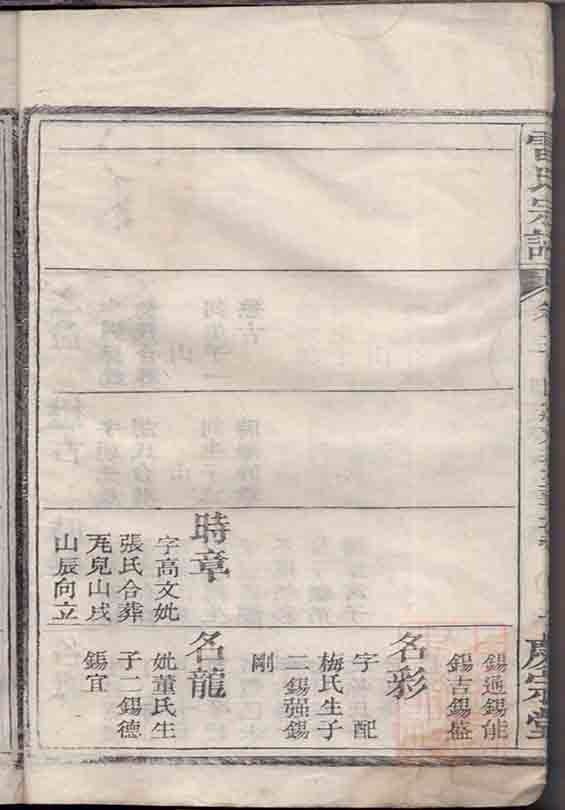 雷氏宗譜
慶宗堂
時章
字高文妣
張氏合葬
山戌
山辰向立
錫通錫能
錫吉錫盛
名彩
字 配
梅氏生子
二錫强錫
剛
名龍
妣董氏生
子二錫德
錫宜